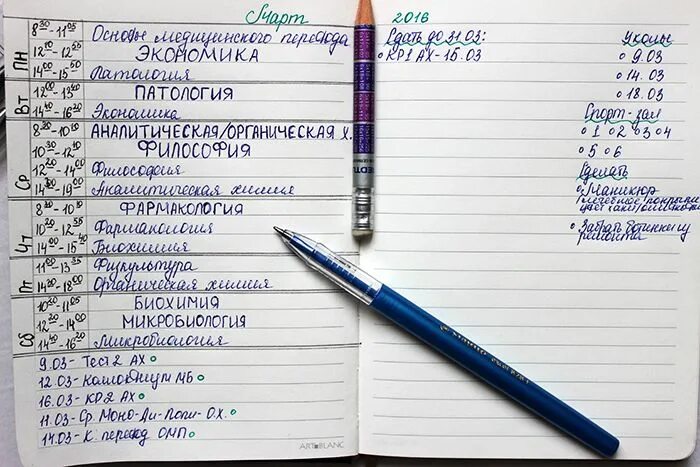 Март
ПН
8:30-11:05 Основы медицинского перевода
12:10-12:55 ЭКОНОМИКА
14:00-15:50 Патология
ВТ
12:00-13:40 ПАТОЛОГИЯ
14:40-16:20 Экономика
СР
8:30-10:10 АНАЛИТИЧЕСКАЯ/ОРГАНИЧЕСКАЯ Х.
10:30-12:10 ФИЛОСОФИЯ
12:20-14:00 Философия
14:40-19:00 Аналитическая химия
ЧТ
8:30-10:10 ФАРМАКОЛОГИЯ
10:20-12:55 Фармакология
14:00-15:40 Биохимия
ПТ
11:00-13:35 Физкультура
14:20-18:00 Органическая химия
СБ
10:20-11:05 БИОХИМИЯ
12:20-14:00 МИКРОБИОЛОГИЯ
14:40-16:20 Микробиология
9.03-Тест 2 АХ
12.03-Коллоквиум МБ
16.03-КР2 АХ
11.03-Ср. Моно-Ди-Поли-О.Х.
14.03-К. перевод ОМП
ARTBLANC
2016
Сдать до 31.03:
КР1 АХ-15.03
Уколы
9.03
14.03
18.03
Спорт-зал
1 2 3 4
5 6
Сделать
Маникюр
Забрать ботинки из
ремонта